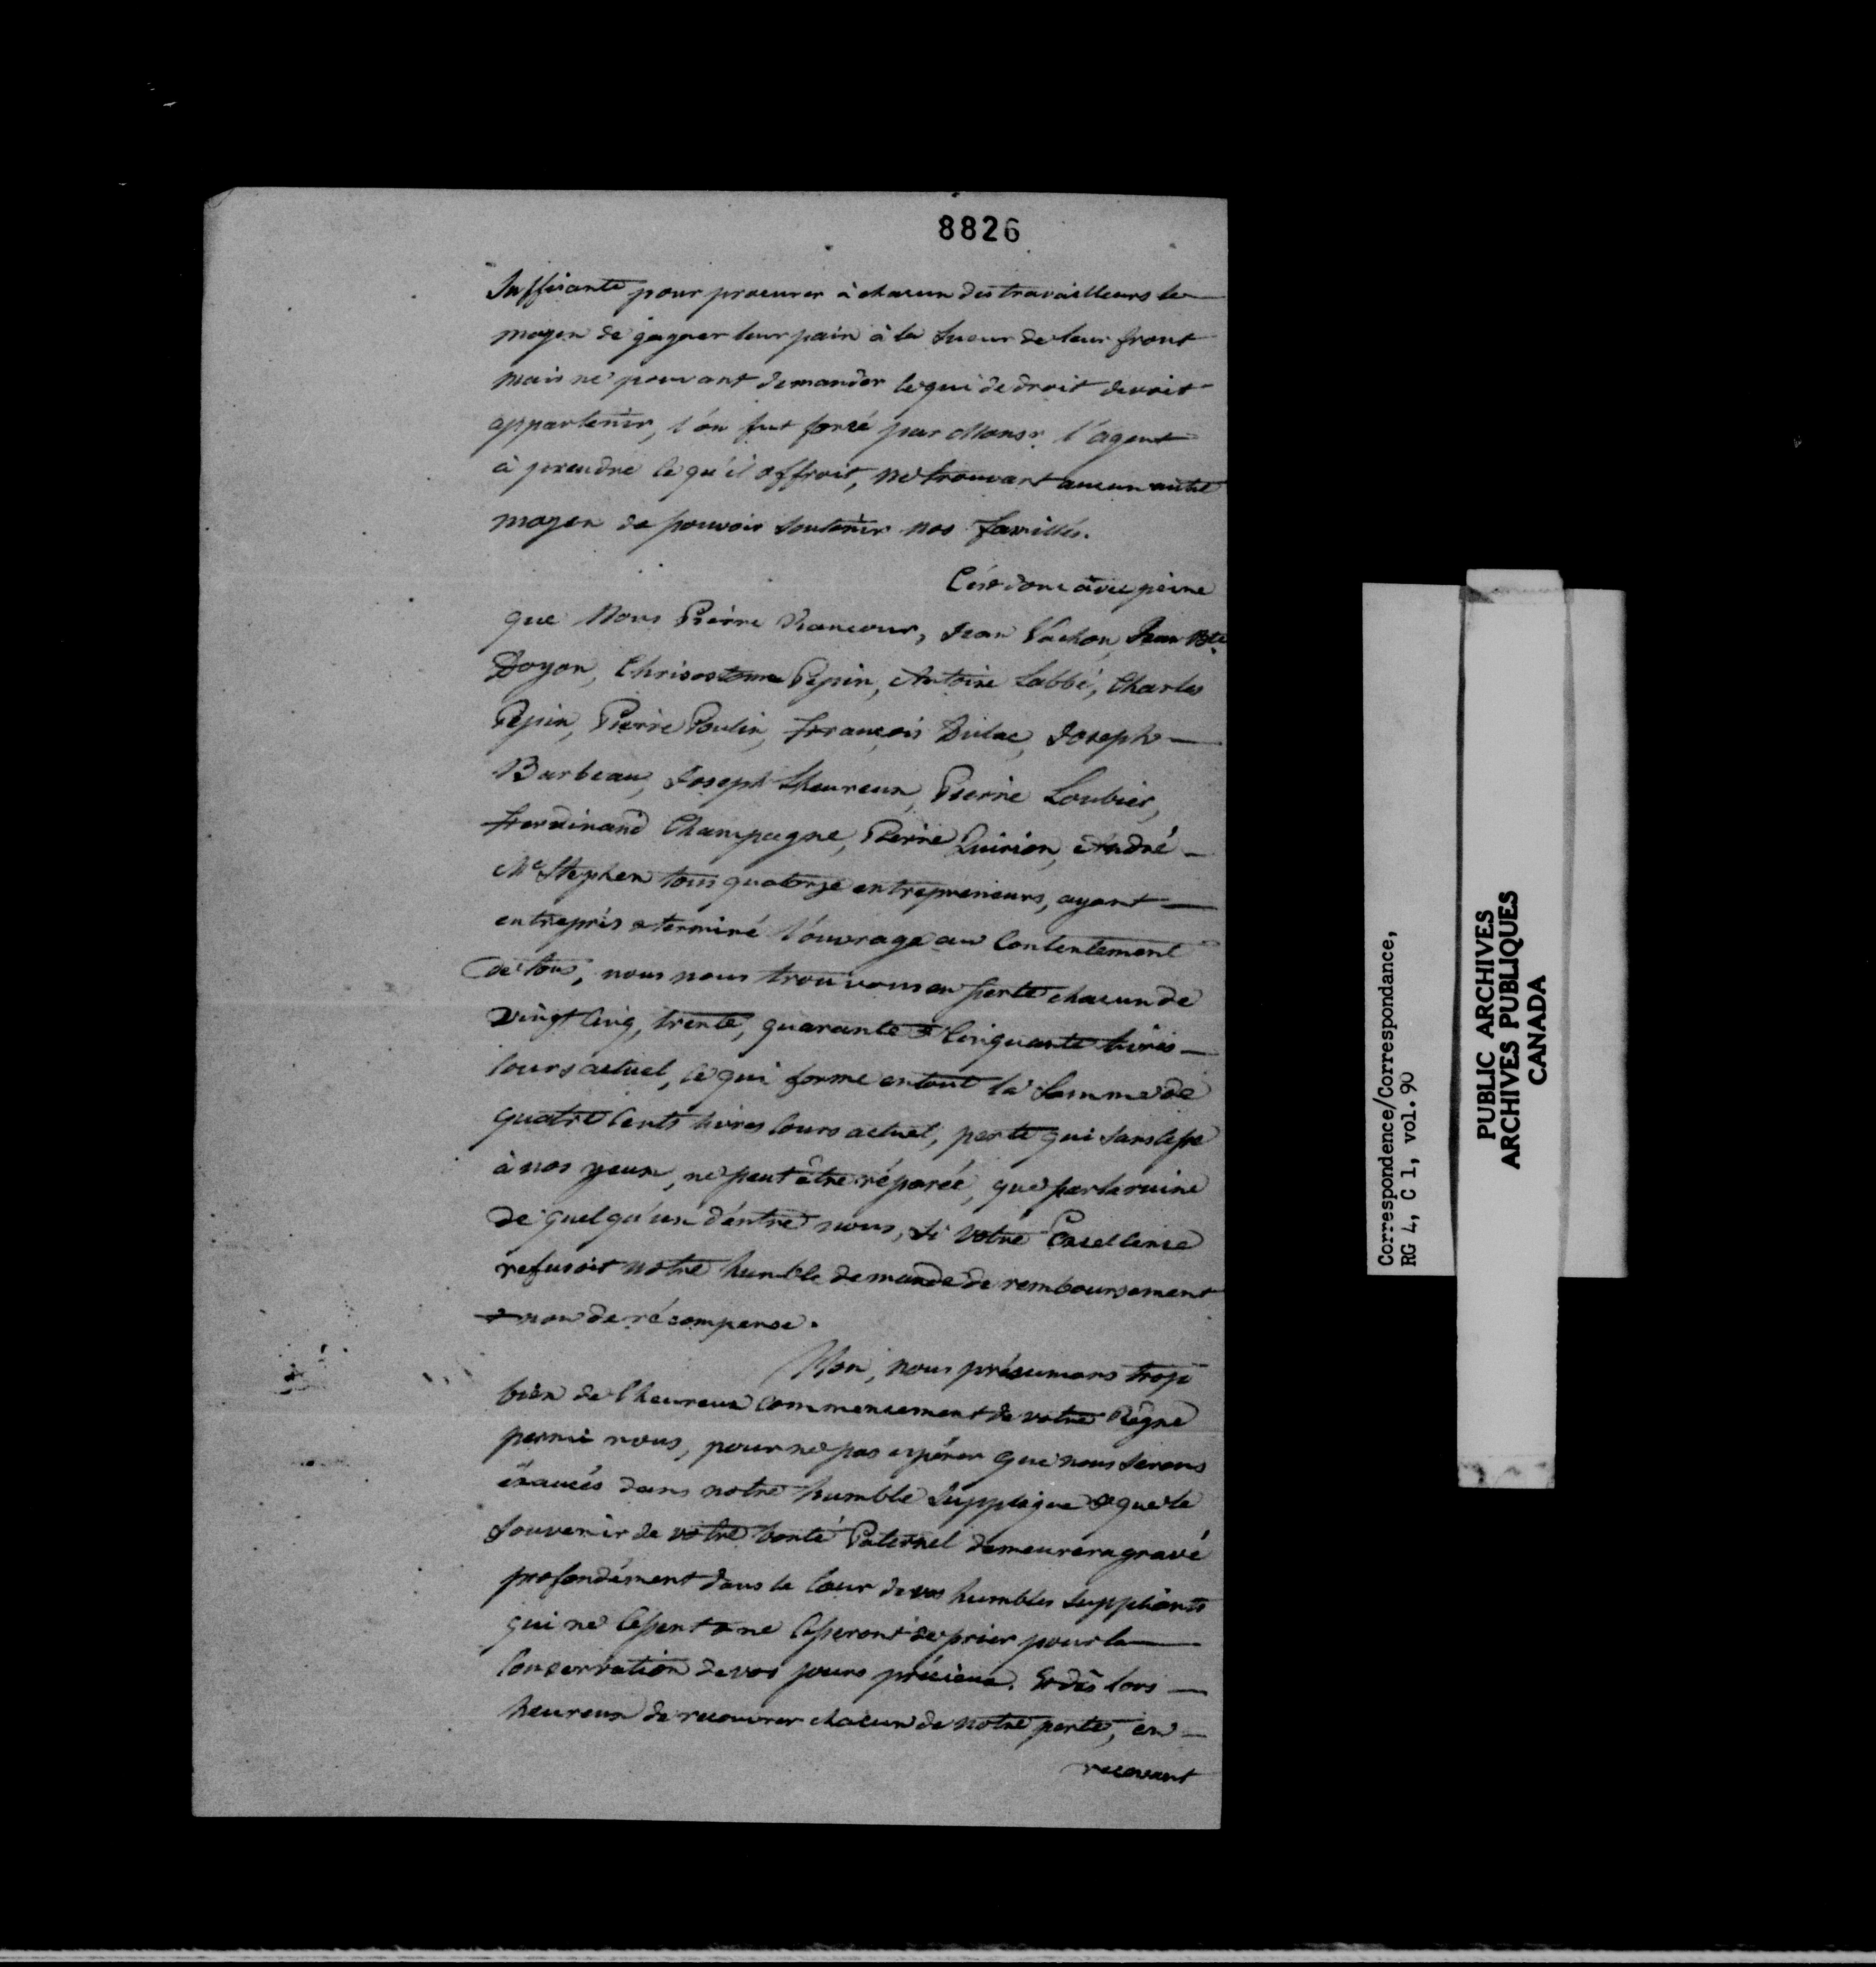 8826
Suffisante pour procurer à chacun des travailleurs le
moyen de gagner leur pain à la Sueur de leur front
mais ne pouvant demander ce qui de droit devoit
appartenir, l'on fut forcé par Monsr. l'agent
à prendre ce qu'il offroit, ne trouvant aucun autre
moyen de pouvoir Soutenir nos familles.
C'est donc avec peine
que Nous Pierre Rancour, Jean Vachon, Jean Bte
Doyon, Chrisostome Pepin, Antoine Labbé, Charles
Pepin, Pierre Poulin, François Dulac, Joseph
Barbeau, Joseph Lheureux, Pierre Loubier,
Ferdinand Champagne, Pierre Quirion, André
Mc Stephen tous quatorze entrepreneurs, ayant
entrepris & terminé l'ouvrage au Contentement
de tous, nous nous trouvons en perte chacun de
vingt Cinq, trente, quarante & Cinquante livres
Cours actuel, ce qui forme en tout la Somme de
quatre Cents livres Cours actuel, perte qui sans cesse
à nos yeux, ne peut être réparée, que par la ruine
de quelqu'un d'entre nous, Si votre Excellence
refusoit notre humble demande de remboursement
& non de récompense.
Non, nous présumons trop
bien de l'heureux Commencement de votre Règne
parmi nous, pour ne pas espérer que nous serons
éxaucés dans notre humble Supplique & que le
Souvenir de votre bonté Paternel demeurera gravé
profondément dans le Cœur de vos humbles Suppliants
qui ne Cessent & ne Cesseront de prier pour la
Conservation de vos jours précieux. Et dès lors
heureux de recouvrer chacun de notre perte, en
recevant
Correspondence/Correspondance,
RG 4, C 1, vol. 90
PUBLIC ARCHIVES
ARCHIVES PUBLIQUES
CANADA